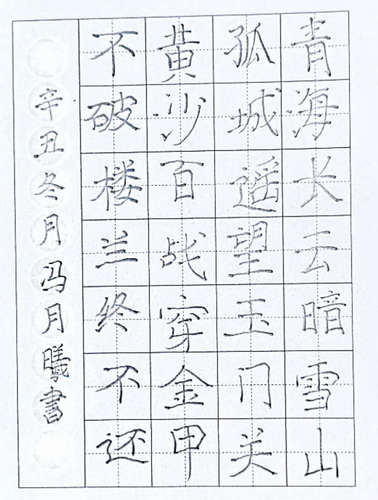 青海长云暗雪山
孤城遥望玉门关
黄沙百战穿金甲
不破楼兰终不还
辛丑冬月冯月曦書